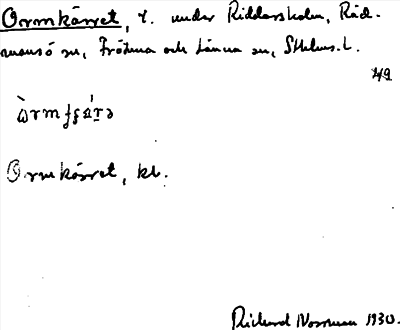 Ormkärret, t. under Riddersholm, Råd-
mansö sn, Frötuna och Länna sn, Sthlms. l.
Ormkärret, kl.
Richard Norrman 1930.